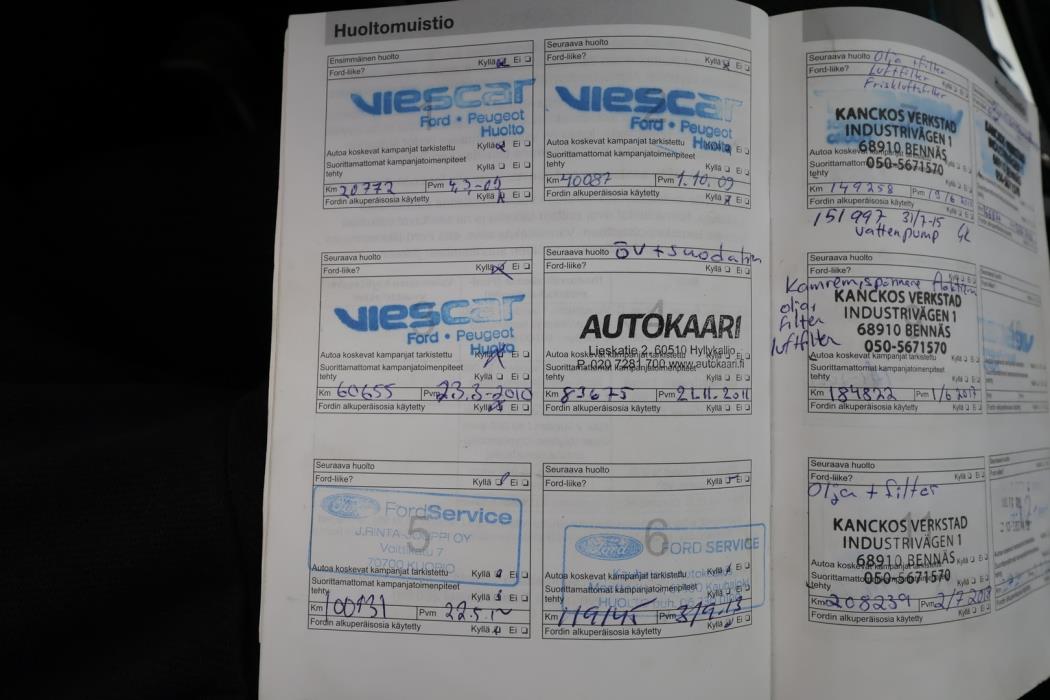 Huoltomuistio
Ensimmäinen huolto
Ford-liike? Kyllä Ei
viescar
Ford • Peugeot
Huolto
Autoa koskevat kampanjat tarkistettu Kyllä Ei
Suorittamattomat kampanjatoimenpiteet
tehty Kyllä Ei
Km 20772 Pvm
Fordin alkuperäisosia käytetty Kyllä Ei
Seuraava huolto
Ford-liike? Kyllä Ei
viescar
Ford • Peugeot
Huolto
Autoa koskevat kampanjat tarkistettu Kyllä Ei
Suorittamattomat kampanjatoimenpiteet
tehty Kyllä Ei
Km 40087 Pvm 1.10.09
Fordin alkuperäisosia käytetty Kyllä Ei
Seuraava huolto
Ford-liike? Kyllä Ei
3
viescar
Ford • Peugeot
Huolto
Autoa koskevat kampanjat tarkistettu Kyllä Ei
Suorittamattomat kampanjatoimenpiteet
tehty Kyllä Ei
Km 60655 Pvm 23.3-2010
Fordin alkuperäisosia käytetty Kyllä Ei
Seuraava huolto ÖV + suodatin
Ford-liike? Kyllä Ei
4
AUTOKAARI
Lieskatie 2, 60510 Hyllykallio
P. 020 7281 700 www.autokaari.fi
Autoa koskevat kampanjat tarkistettu Kyllä Ei
Suorittamattomat kampanjatoimenpiteet
tehty Kyllä Ei
Km 83675 Pvm 21.11.2011
Fordin alkuperäisosia käytetty Kyllä Ei
Seuraava huolto
Ford-liike? Kyllä Ei
5
Ford FordService
J.RINTA-JOUPPI OY
Volttikatu 7
70700 KUOPIO
Autoa koskevat kampanjat tarkistettu Kyllä Ei
Suorittamattomat kampanjatoimenpiteet
tehty Kyllä Ei
Km 100431 Pvm
Fordin alkuperäisosia käytetty Kyllä Ei
Seuraava huolto
Ford-liike? Kyllä Ei
6
Ford FORD SERVICE
Autoa koskevat kampanjat tarkistettu Kyllä Ei
Suorittamattomat kampanjatoimenpiteet
tehty Kyllä Ei
Km 119145 Pvm
Fordin alkuperäisosia käytetty Kyllä Ei
Seuraava huolto Olja + filter
Ford-liike? Luftfilter
Friskluftsfilter
KANCKOS VERKSTAD
INDUSTRIVÄGEN 1
68910 BENNÄS
050-5671570
tehty
Km 149258 Pvm
Fordin alkuperäisosia käytetty Kyllä Ei
151997 31/7-15
vattenpump
Seuraava huolto
Ford-liike?
Kamremspännare
olja,
filter
luftfilter
KANCKOS VERKSTAD
INDUSTRIVÄGEN 1
68910 BENNÄS
050-5671570
tehty
Km 184822 Pvm 1/6 2017
Fordin alkuperäisosia käytetty Kyllä Ei
Seuraava huolto
Ford-liike? Kyllä Ei
Olja + filter
11
KANCKOS VERKSTAD
INDUSTRIVÄGEN 1
68910 BENNÄS
050-5671570
tehty
Km 208239 Pvm
Fordin alkuperäisosia käytetty Kyllä Ei